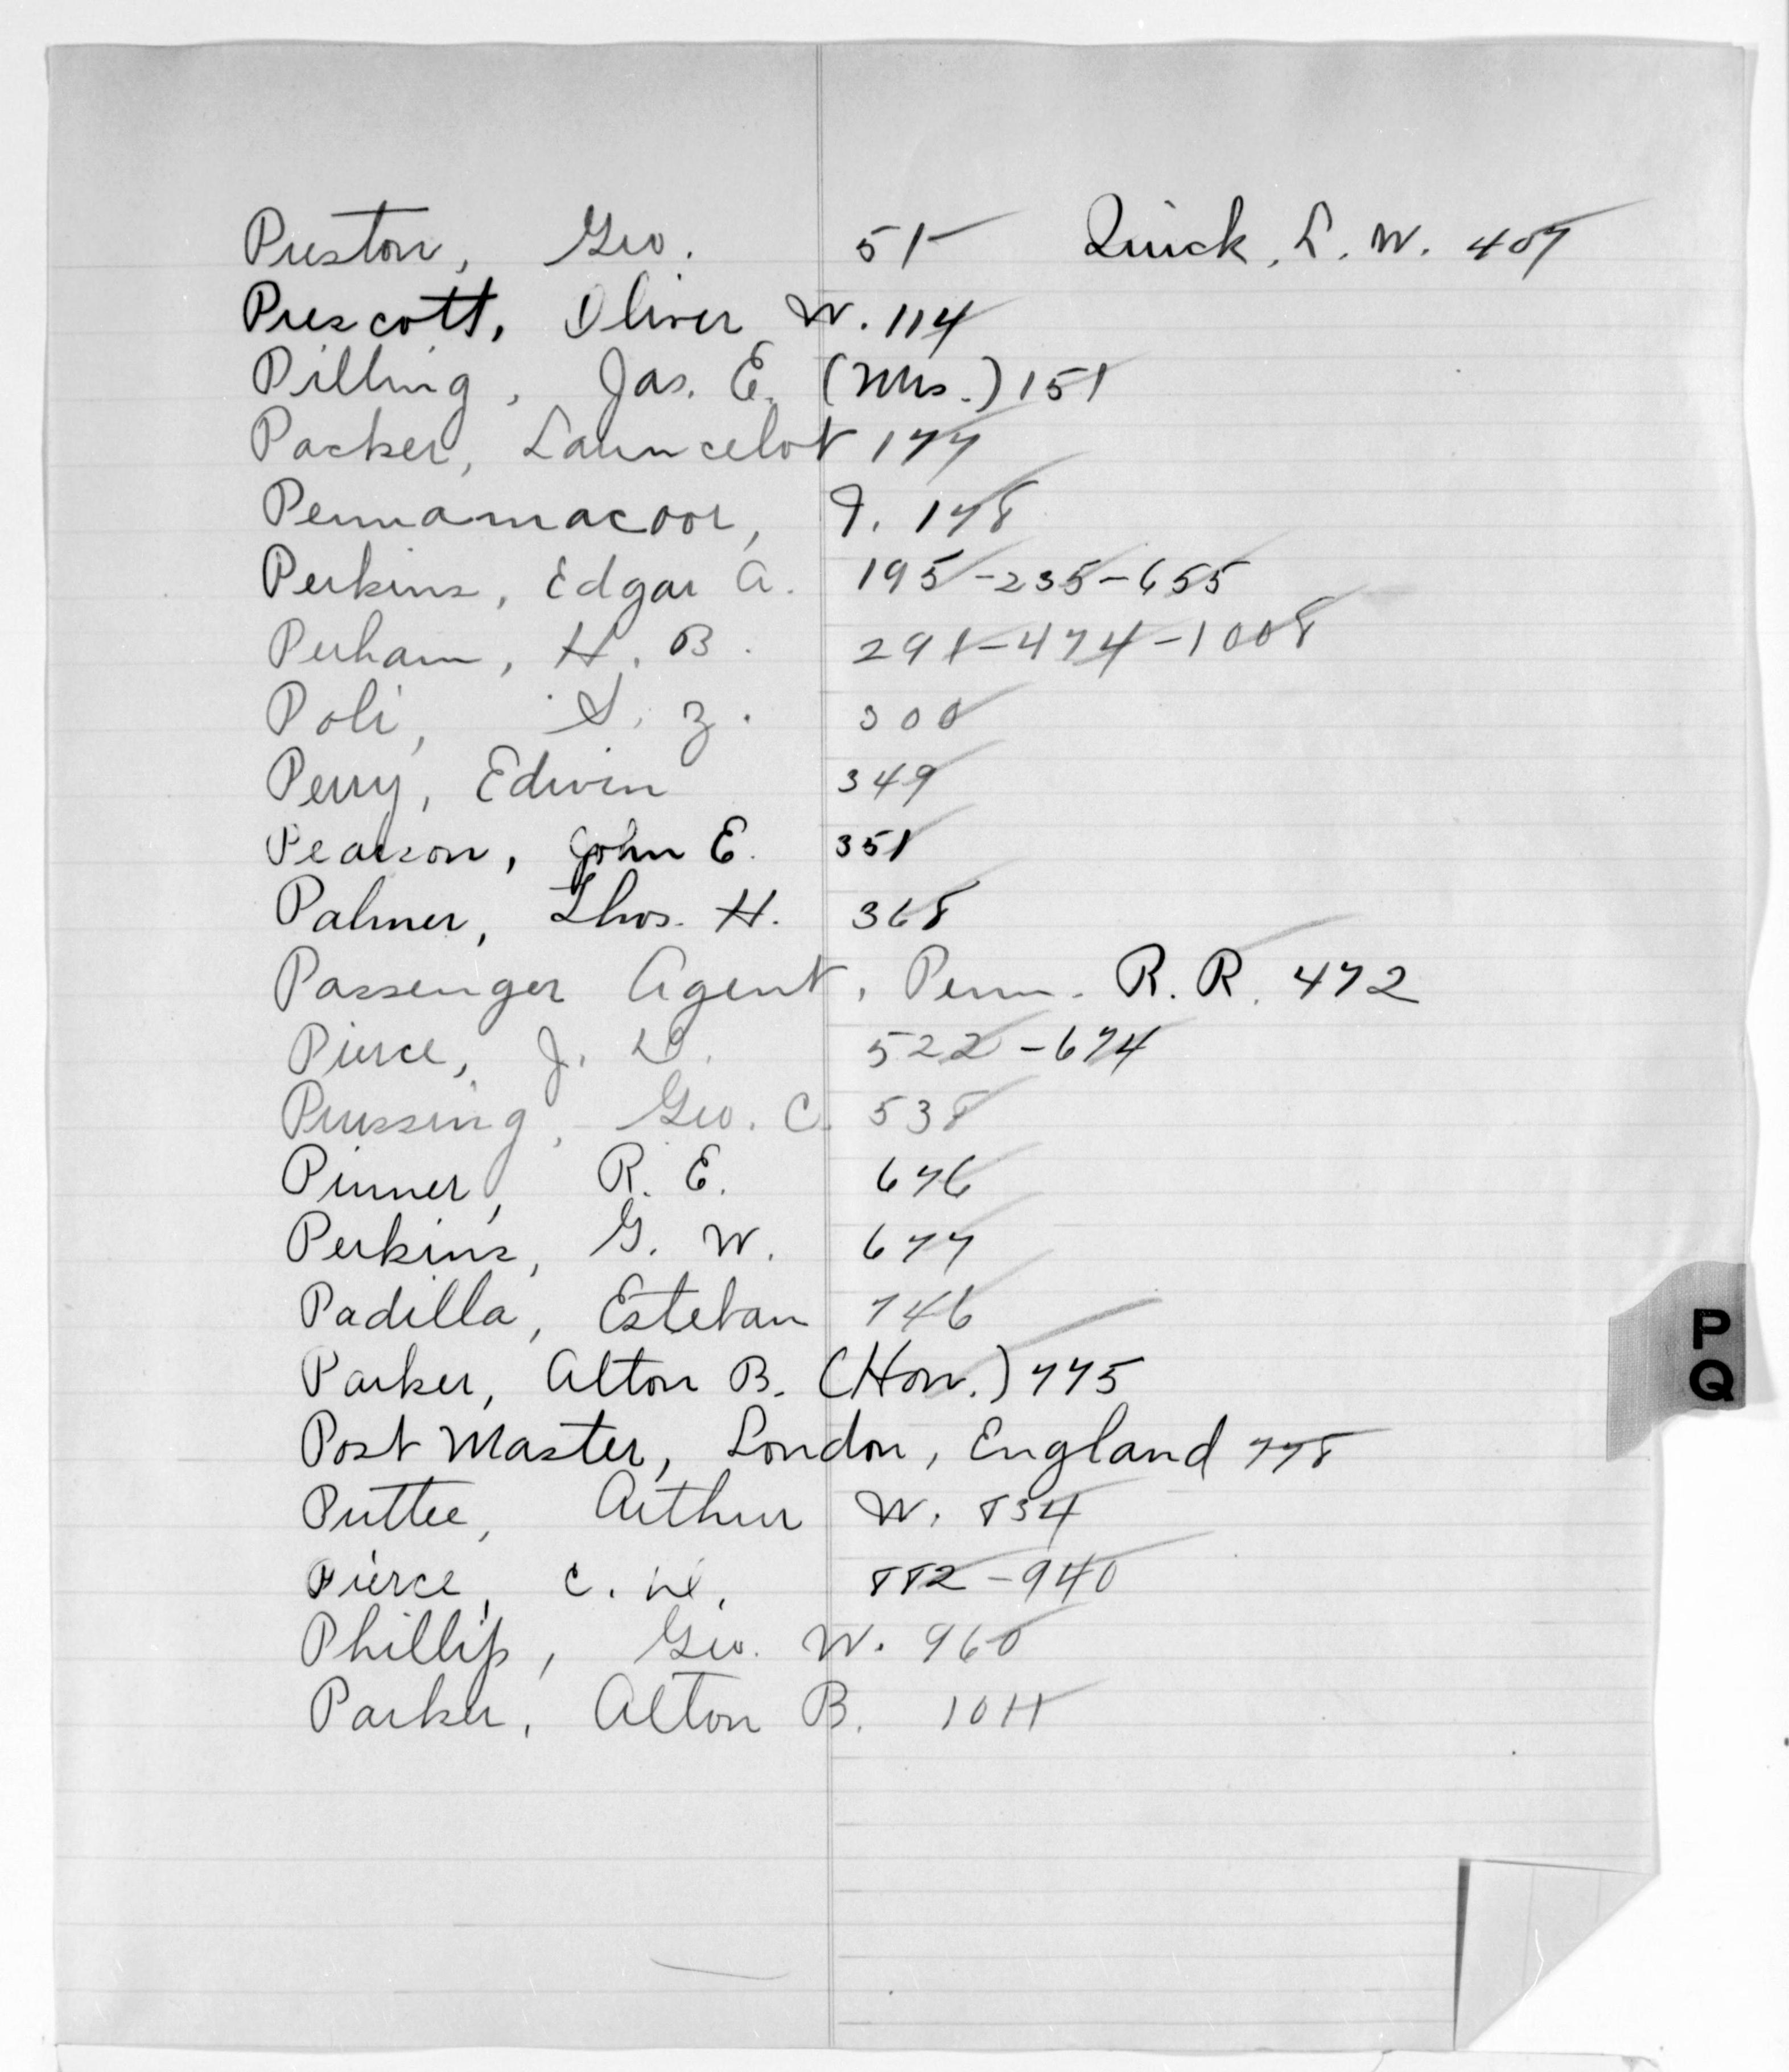 Preston, Geo. 51 Quick, L. W. 407
Prescott, Oliver W. 114
Pilling, Jas. E. (Mrs.) 151
Packer, Launcelot 177
Pennamacoor, I. 178
Perkins, Edgar A. 195-235-655
Perham, H. B. 291-474-1008
Poli, S. Z. 300
Perry, Edwin 349
Pearson, John E. 351
Palmer, Thos. H. 368
Passenger Agent, Penn. R. R. 472
Pierce, J. D. 522-674
Prussing, Geo. C. 538
Pinner, R. E. 676
Perkins, G. W. 677
Padilla, Esteban 746
Parker, Alton B. (Hon.) 775
Post Master, London, England 778
Puttee, Arthur W. 834
Pierce, C. 882-940
Phillip, Geo. W. 960
Parker, Alton B. 1011
P
Q